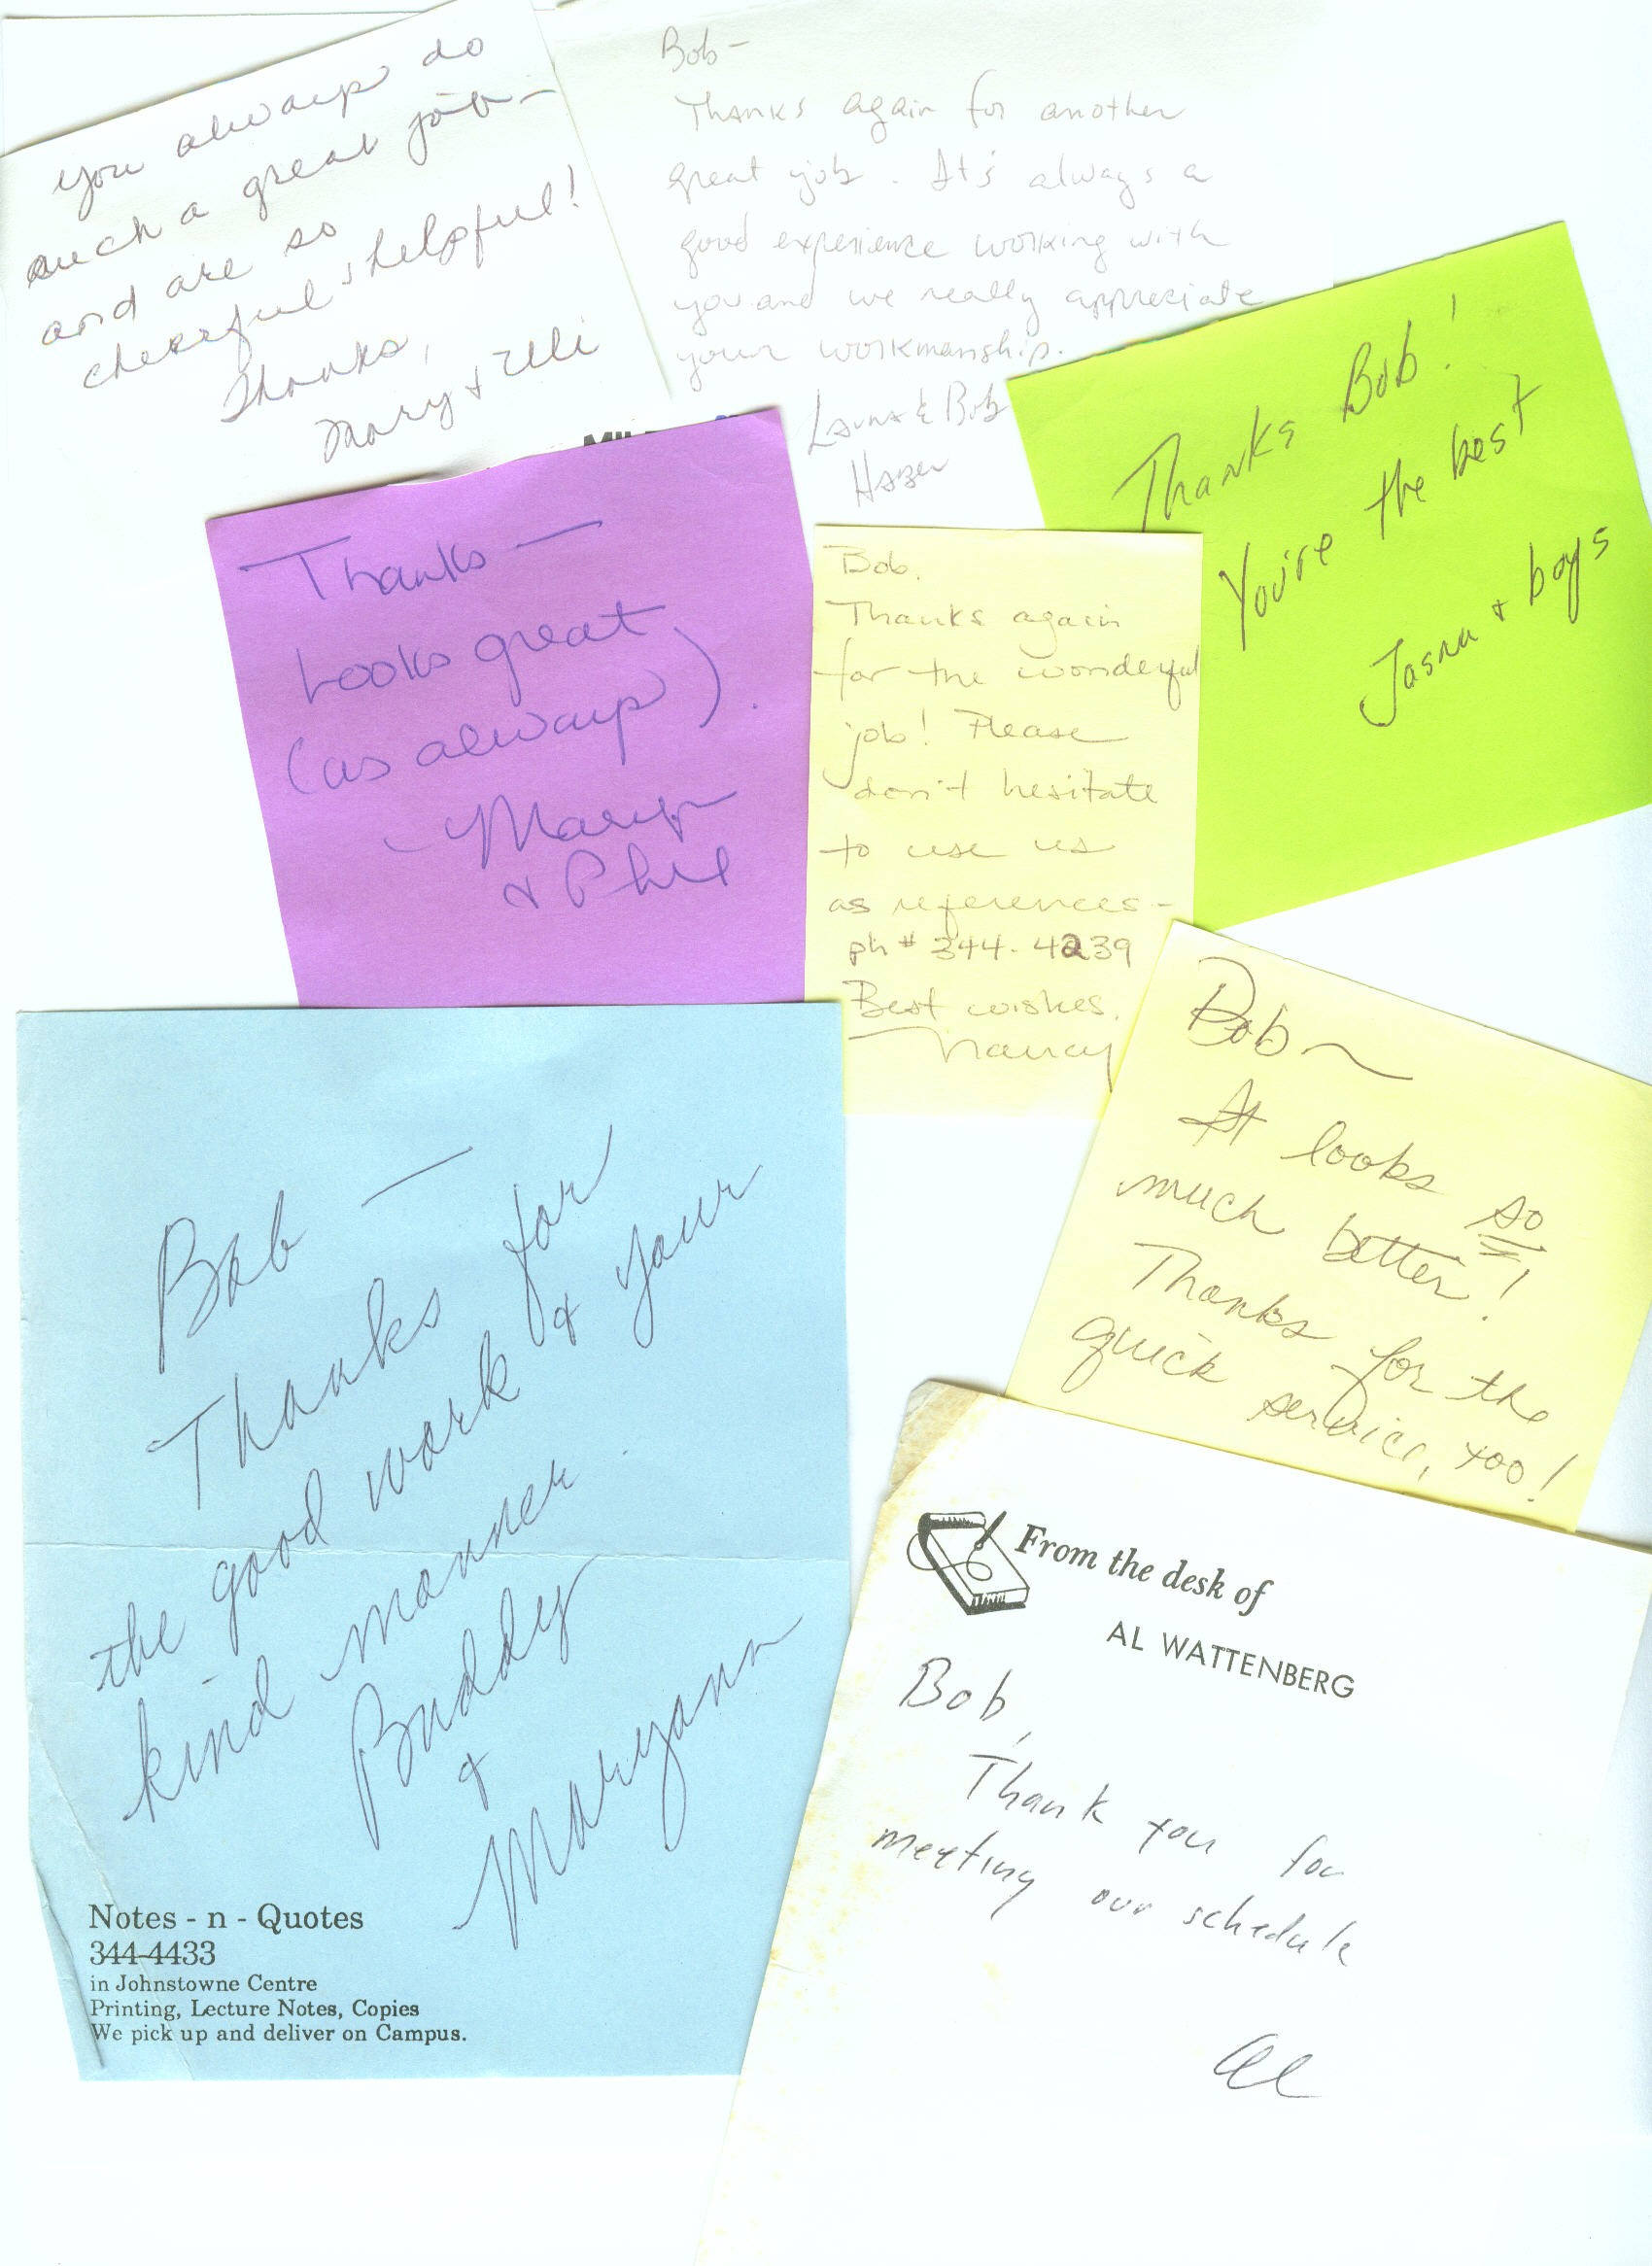 you always do
such a great job—
and are so
cheerful & helpful!
Thanks,
Mary & Ulli
Bob—
Thanks again for another
great job. It's always a
good experience working with
you and we really appreciate
your workmanship.
Laura & Bob
Hazen
Thanks Bob!
You're the best
Jasna & boys
Thanks—
Looks great
(as always).
~ Marilyn
& Phil
Bob.
Thanks again
for the wonderful
job! Please
don't hesitate
to use us
as references-
ph # 344-4239
Best wishes.
Nancy
Bob~
It looks so
much better!
Thanks for the
quick service, too!
Bob—
Thanks for
the good work & your
kind manner.
Buddy
&
Maryann
Notes - n - Quotes
344-4433
in Johnstowne Centre
Printing, Lecture Notes, Copies
We pick up and deliver on Campus.
From the desk of
AL WATTENBERG
Bob,
Thank you for
meeting our schedule
Al